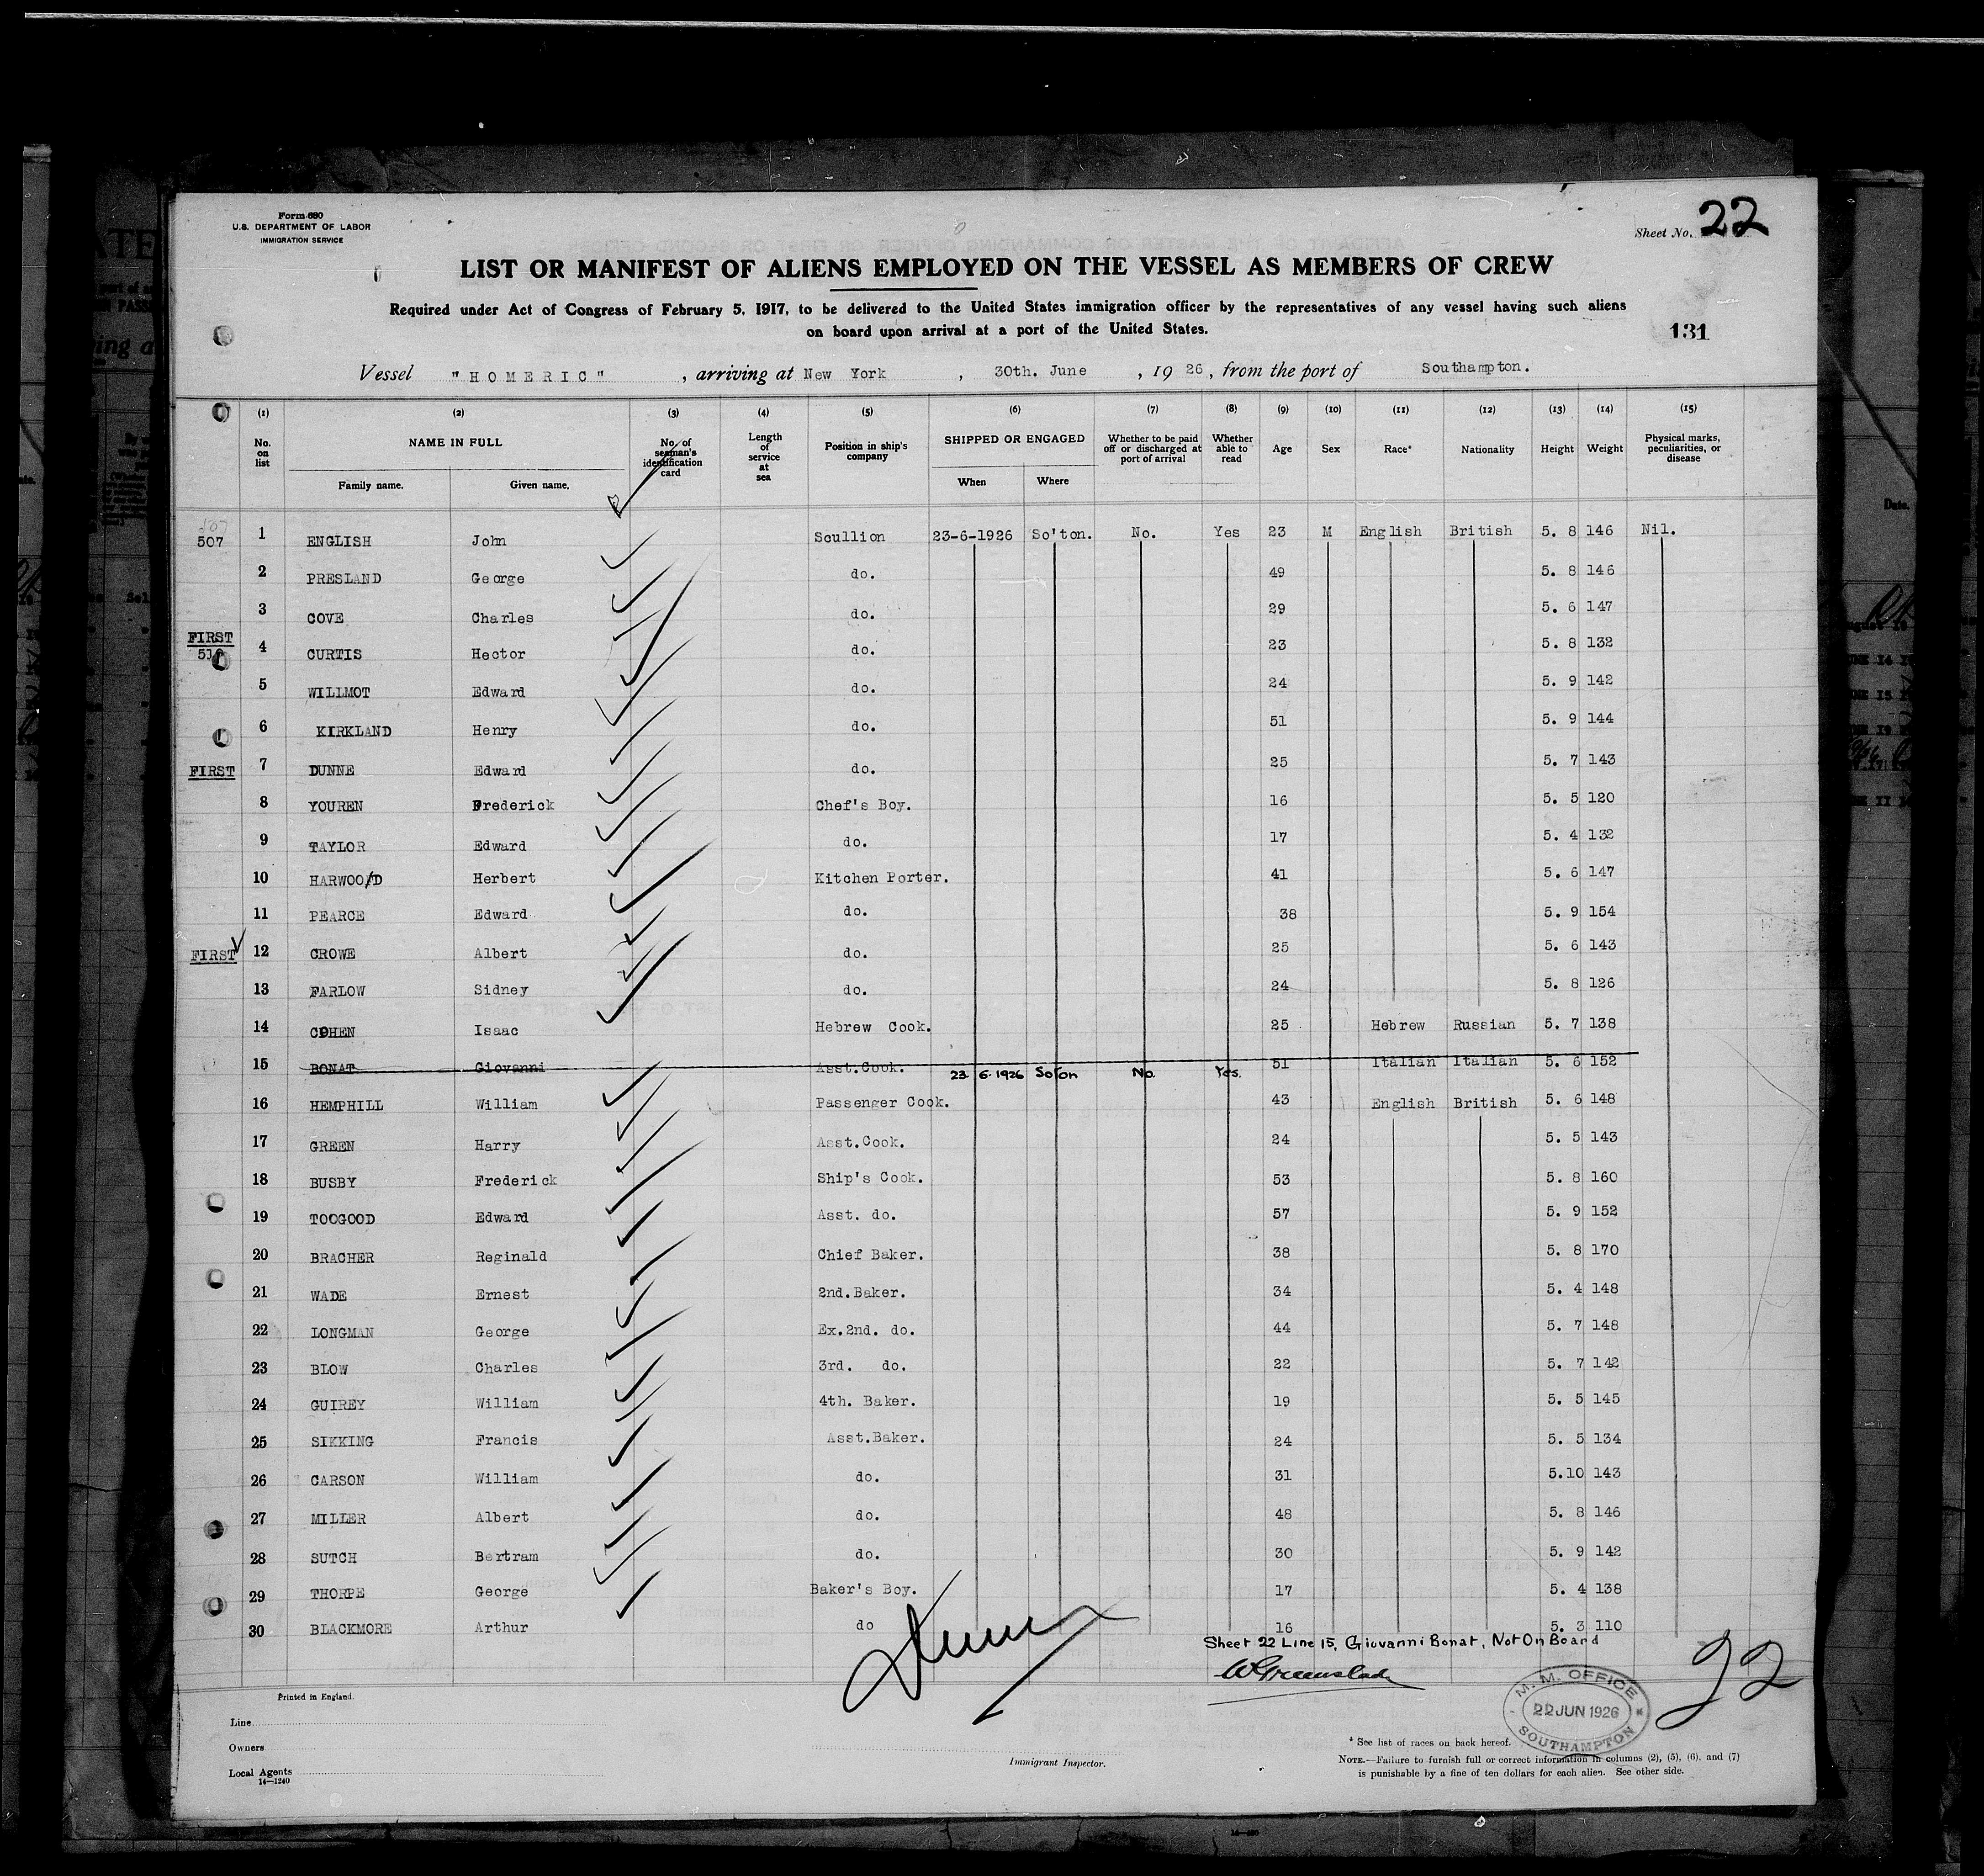 Form 680
U.S. DEPARTMENT OF LABOR
IMMIGRATION SERVICE
Sheet No. 22
LIST OR MANIFEST OF ALIENS EMPLOYED ON THE VESSEL AS MEMBERS OF CREW
Required under Act of Congress of February 5, 1917, to be delivered to the United States immigration officer by the representatives of any vessel having such aliens
on board upon arrival at a port of the United States.
131
Vessel "HOMERIC", arriving at New York, 30th. June, 1926, from the port of Southampton.
(1) (2) (3) (4) (5) (6) (7) (8) (9) (10) (11) (12) (13) (14) (15)
No. on list NAME IN FULL No. of seaman's identification card Length of service at sea Position in ship's company SHIPPED OR ENGAGED Whether to be paid off or discharged at port of arrival Whether able to read Age Sex Race* Nationality Height Weight Physical marks, peculiarities, or disease
Family name. Given name. When Where
507
507 1 ENGLISH John Scullion 23-6-1926 So'ton. No. Yes 23 M English British 5. 8 146 Nil.
2 PRESLAND George do. 49 5. 8 146
3 COVE Charles do. 29 5. 6 147
FIRST
4 CURTIS Hector do. 23 5. 8 132
5 WILLMOT Edward do. 24 5. 9 142
6 KIRKLAND Henry do. 51 5. 9 144
FIRST 7 DUNNE Edward do. 25 5. 7 143
8 YOUREN Frederick Chef's Boy. 16 5. 5 120
9 TAYLOR Edward do. 17 5. 4 132
10 HARWOO/D Herbert Kitchen Porter. 41 5. 6 147
11 PEARCE Edward do. 38 5. 9 154
FIRST 12 CROWE Albert do. 25 5. 6 143
13 FARLOW Sidney do. 24 5. 8 126
14 COHEN Isaac Hebrew Cook. 25 Hebrew Russian 5. 7 138
15 BONAT Giovanni Asst.Cook. 23 6. 1926 Soton No. Yes. 51 Italian Italian 5. 6 152
16 HEMPHILL William Passenger Cook. 43 English British 5. 6 148
17 GREEN Harry Asst.Cook. 24 5. 5 143
18 BUSBY Frederick Ship's Cook. 53 5. 8 160
19 TOOGOOD Edward Asst. do. 57 5. 9 152
20 BRACHER Reginald Chief Baker. 38 5. 8 170
21 WADE Ernest 2nd.Baker. 34 5. 4 148
22 LONGMAN George Ex.2nd. do. 44 5. 7 148
23 BLOW Charles 3rd. do. 22 5. 7 142
24 GUIREY William 4th. Baker. 19 5. 5 145
25 SIKKING Francis Asst.Baker. 24 5. 5 134
26 CARSON William do. 31 5.10 143
27 MILLER Albert do. 48 5. 8 146
28 SUTCH Bertram do. 30 5. 9 142
29 THORPE George Baker's Boy. 17 5. 4 138
30 BLACKMORE Arthur do 16 5. 3 110
Sheet 22 Line 15, Giovanni Bonat, Not On Board
WGreenslade
22
M. M. OFFICE
22 JUN 1926
SOUTHAMPTON
Printed in England.
Line
Owners
Local Agents
14—1240
Immigrant Inspector.
* See list of races on back hereof.
NOTE.—Failure to furnish full or correct information in columns (2), (5), (6), and (7)
is punishable by a fine of ten dollars for each alien. See other side.